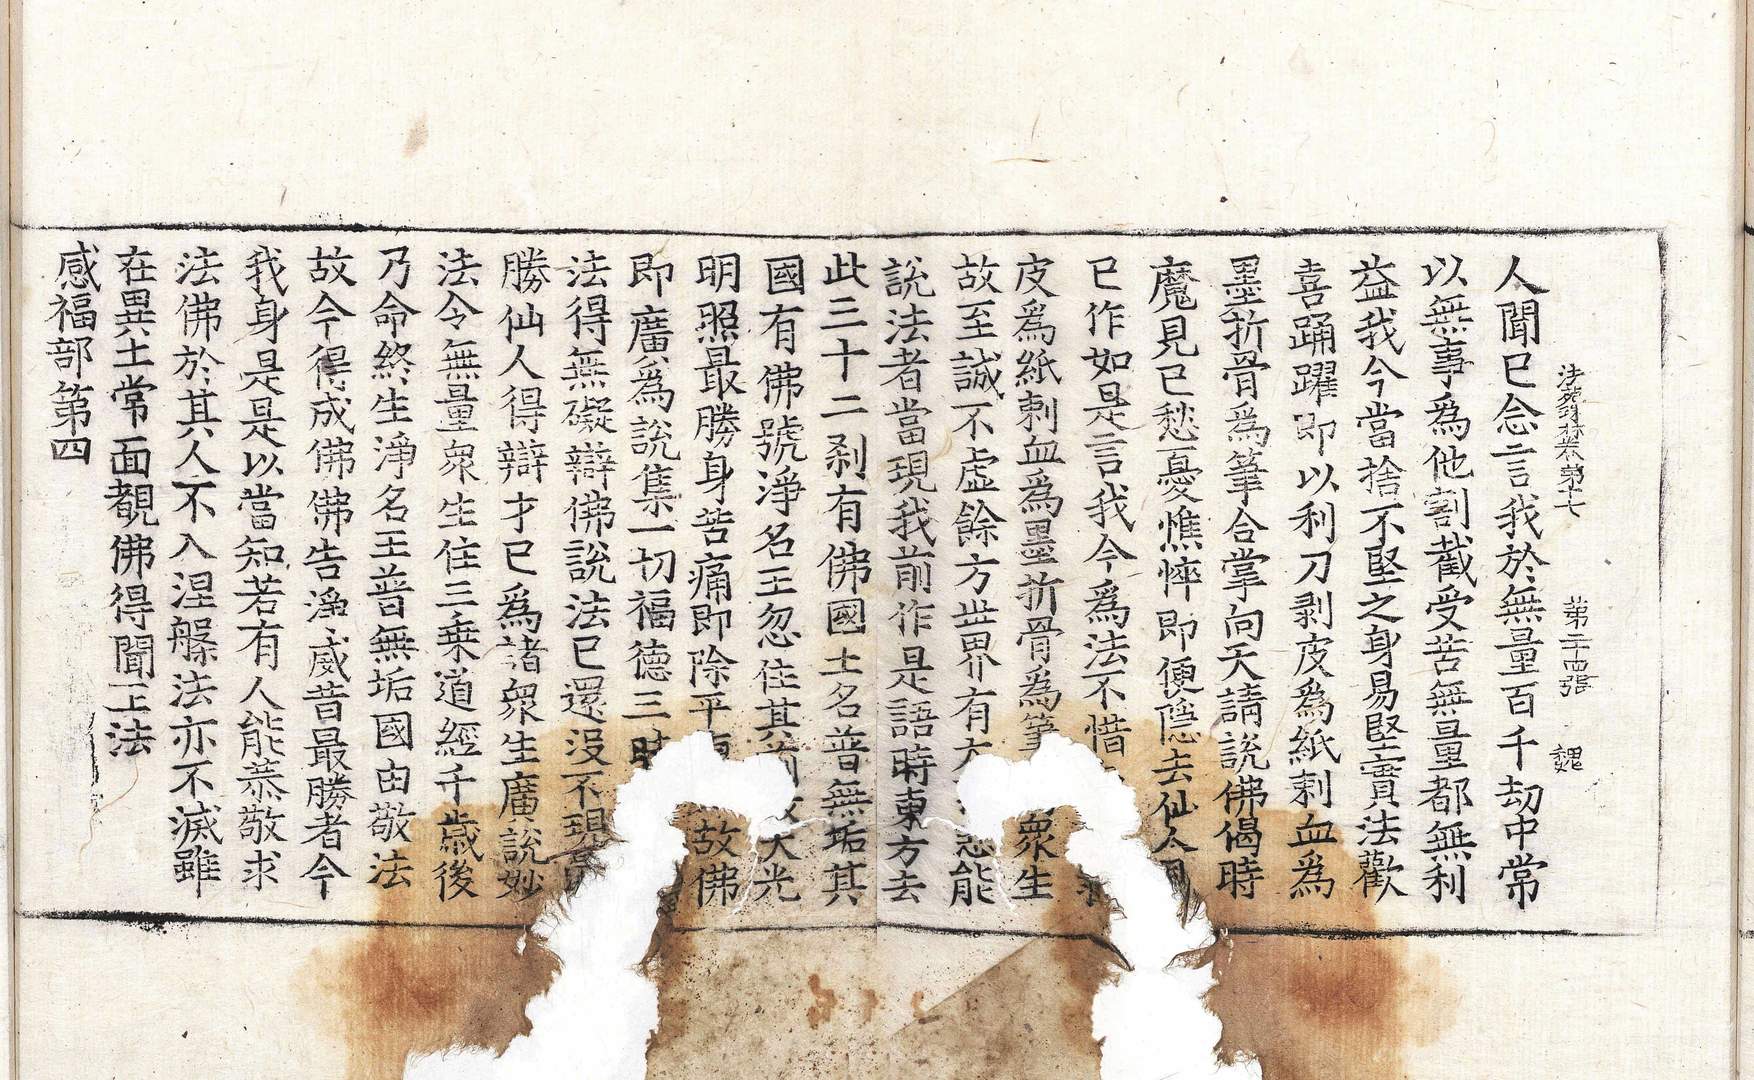 法苑珠林卷第十七 第二十四張 魏
人聞已念言我於無量百千劫中常
以無事為他割截受苦無量都無利
益我今當捨不堅之身易堅實法歡
喜踊躍即以利刀剥皮為紙刺血為
墨折骨為筆合掌向天請說佛偈時
魔見已愁憂憔悴即便隱去仙人
已作如是言我今為法不惜
皮爲紙刺血爲墨折骨為筆 衆生
故至誠不虛餘方世界有大 悲能
說法者當現我前作是語時東方去
此三十二刹有佛國土名普無垢其
國有佛號淨名王忽住其前放大光
明照最勝身苦痛即除平 故佛
即廣爲說集一切福德三
法得無礙辯佛說法已還没不現
勝仙人得辯才已爲諸衆生廣說妙
法令無量衆生住三乗道經千歲後
乃命終生淨名王普無垢國由敬法
故今得成佛佛告淨威昔最勝者今
我身是是以當知若有人能恭敬求
法佛於其人不入涅槃法亦不滅雖
在異土常面覩佛得聞正法
感福部第四